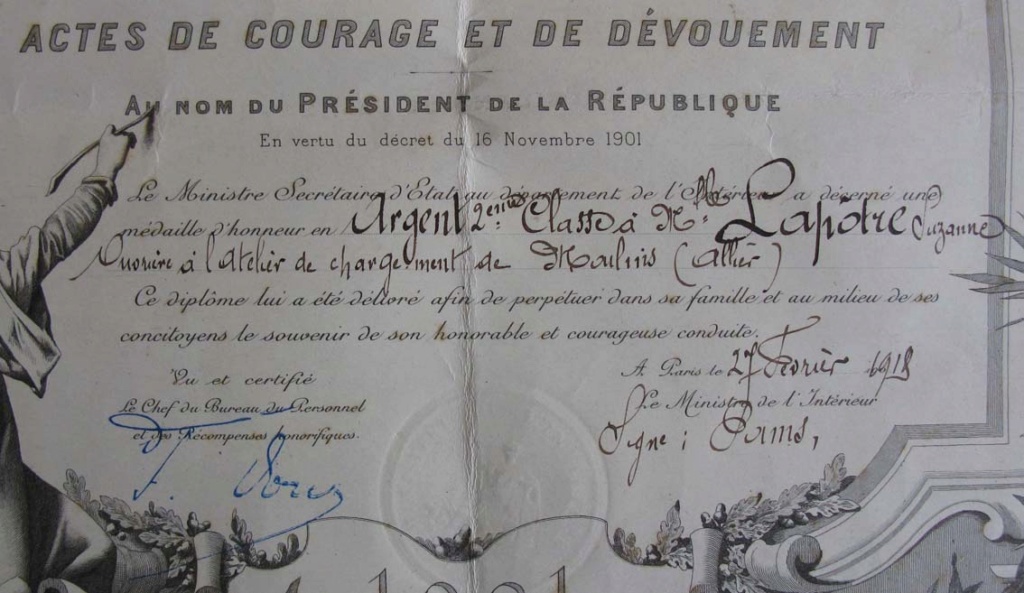 ACTES DE COURAGE ET DE DÉVOUEMENT
AU NOM DU PRÉSIDENT DE LA RÉPUBLIQUE
En vertu du décret du 16 Novembre 1901
Le Ministre Secrétaire d'Etat au département de l'Intérieur a décerné une
médaille d'honneur en Argent 2e Classe à Mlle Lapôtre Suzanne
Ouvrière à l'Atelier de chargement de Moulins (Allier)
Ce diplôme lui a été délivré afin de perpétuer dans sa famille et au milieu de ses
concitoyens le souvenir de son honorable et courageuse conduite.
Vu et certifié
A Paris le 27 Février 1918
Le Chef du Bureau du Personnel
Le Ministre de l'Intérieur
et des Récompenses honorifiques.
Signé : Pams,